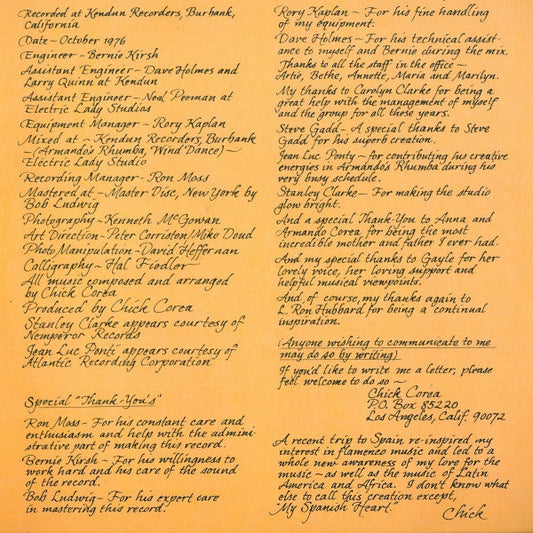 Recorded at Kendun Recorders, Burbank,
California
Date - October 1976
Engineer - Bernie Kirsh
Assistant Engineer - Dave Holmes and
Larry Quinn at Kendun
Assistant Engineer - Neal Peeman at
Electric Lady Studios
Equipment Manager - Rory Kaplan
Mixed at - Kendun Recorders, Burbank
- (Armando's Rhumba, Wind Dance) -
Electric Lady Studio
Recording Manager - Ron Moss
Mastered at - Master Disc, New York by
Bob Ludwig
Photography - Kenneth McGowan
Art Direction - Peter Corriston/Mike Doud
Photo Manipulation - David Heffernan
Calligraphy - Hal Fiedler
All music composed and arranged
by Chick Corea
Produced by Chick Corea
Stanley Clarke appears courtesy of
Nemperor Records
Jean Luc Ponté appears courtesy of
Atlantic Recording Corporation
Special "Thank-You's"
Ron Moss - For his constant care and
enthusiasm and help with the admini-
strative part of making this record.
Bernie Kirsh - For his willingness to
work hard and his care of the sound
of the record.
Bob Ludwig - For his expert care
in mastering this record.
Rory Kaplan - For his fine handling
of my equipment.
Dave Holmes - For his technical assist-
ance to myself and Bernie during the mix.
Thanks to all the staff in the office -
Artie, Bethe, Annette, Maria and Marilyn.
My thanks to Carolyn Clarke for being a
great help with the management of myself
and the group for all these years.
Steve Gadd - A special thanks to Steve
Gadd for his superb creation.
Jean Luc Ponty - for contributing his creative
energies in Armando's Rhumba during his
very busy schedule.
Stanley Clarke - For making the studio
glow bright.
And a special Thank You to Anna and
Armando Corea for being the most
incredible mother and father I ever had.
And my special thanks to Gayle for her
lovely voice, her loving support and
helpful musical viewpoints.
And, of course, my thanks again to
L. Ron Hubbard for being a continual
inspiration.
(Anyone wishing to communicate to me
may do so by writing)
If you'd like to write me a letter, please
feel welcome to do so -
Chick Corea
P.O. Box 85220
Los Angeles, Calif. 90072
A recent trip to Spain re-inspired my
interest in flamenco music and led to a
whole new awareness of my love for the
music - as well as the music of Latin
America and Africa. I don't know what
else to call this creation except,
"My Spanish Heart."
Chick